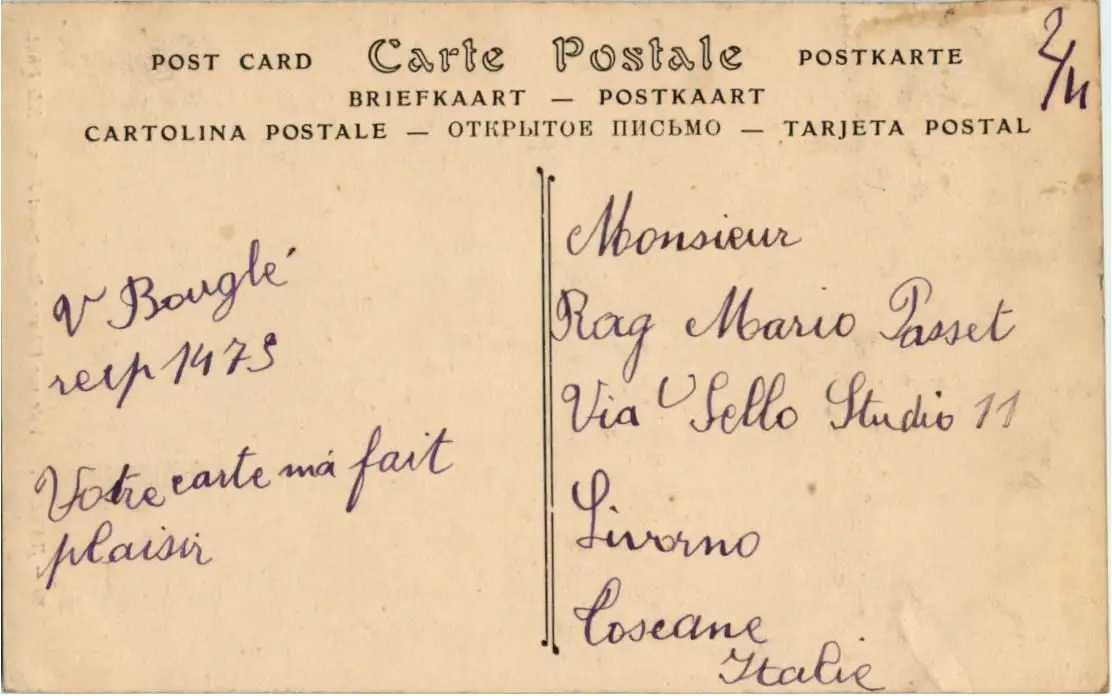 POST CARD Carte Postale POSTKARTE
BRIEFKAART — POSTKAART
CARTOLINA POSTALE — ОТКРЫТОЕ ПИСЬМО — TARJETA POSTAL
V Bouglé
resp 1473
Votre carte m'a fait
plaisir
Monsieur
Rag Mario Passet
Via Studio 11
Livorno
Toscane
Italie